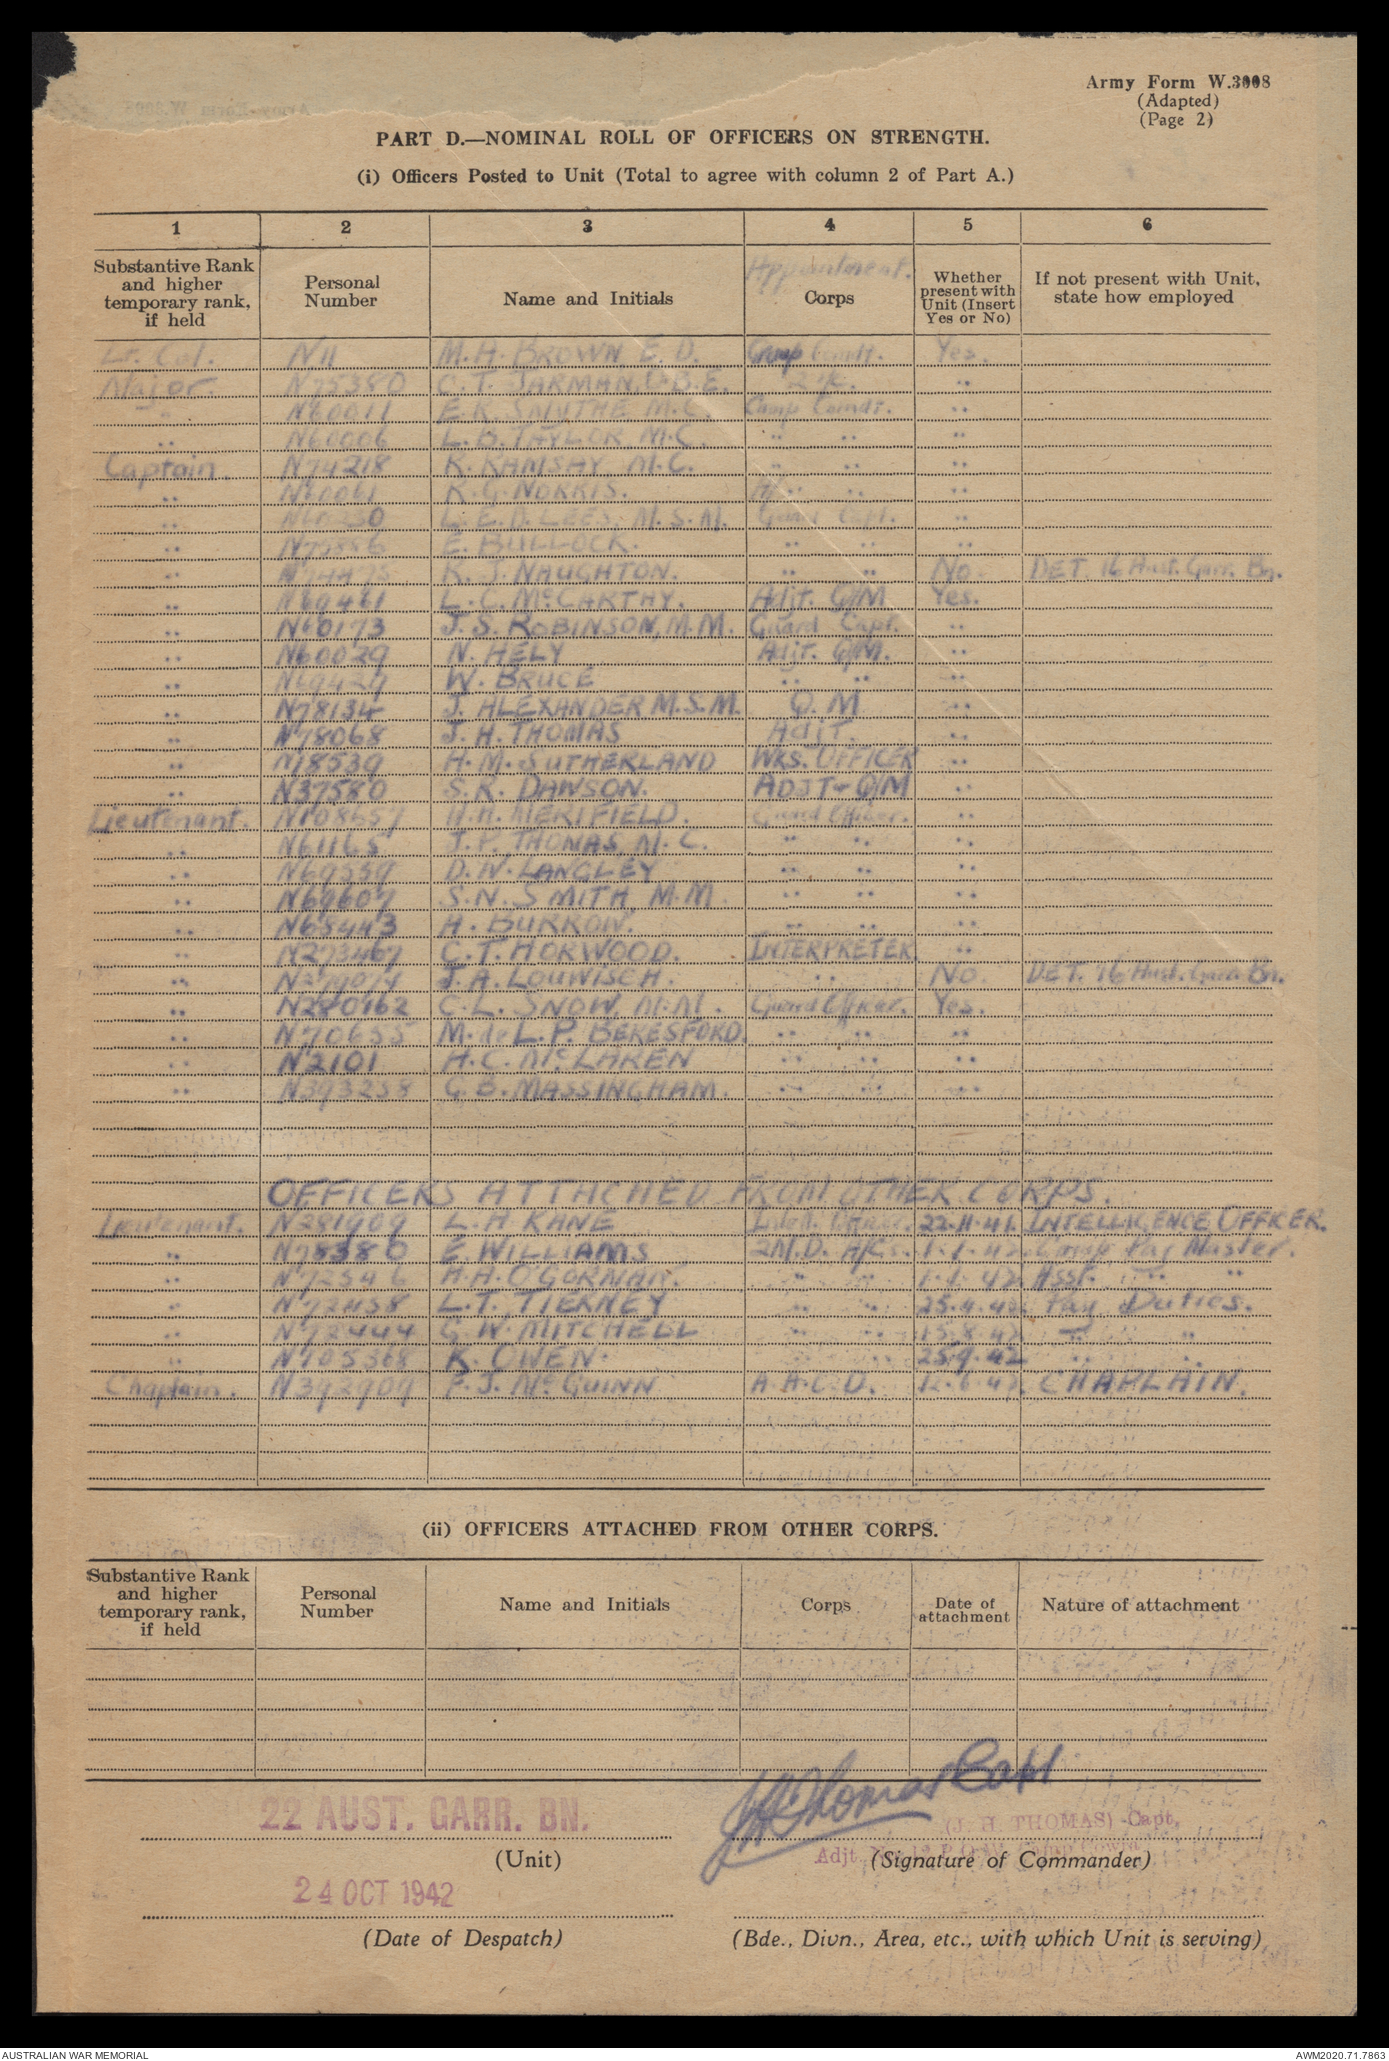 Army Form W.3008
(Adapted)
(Page 2)
PART D.—NOMINAL ROLL OF OFFICERS ON STRENGTH.
(i) Officers Posted to Unit (Total to agree with column 2 of Part A.)
1 2 3 4 5 6
Substantive Rank and higher temporary rank, if held Personal Number Name and Initials Appointment. Corps Whether present with Unit (Insert Yes or No) If not present with Unit, state how employed
Lt. Col. N11 M.H. BROWN, E.D. Group Comdt. Yes.
Major. N75380 C.T. JARMAN, O.B.E. 2 i/c. "
" N60011 E.K. SMYTHE M.C. Camp Comdt. "
" N60006 L.B. TAYLOR, M.C. " " "
Captain. N74218 R. RAMSAY, M.C. " " "
" N60061 R.G. NORRIS. " " "
" L.E.D. LEES, M.S.M. Guard Capt. "
" E. BULLOCK. " " "
" N74475 R.J. NAUGHTON. " " No. DET. 16 Aust. Garr. Bn.
" N69461 L.C. McCARTHY. Adjt. Q/M Yes.
" N60173 J.S. ROBINSON, M.M. Guard Capt. "
" N60029 N. HELY Adjt. Q/M. "
" N69429 W. BRUCE " " "
" N78134 J. ALEXANDER M.S.M. Q.M "
" N78068 J.H. THOMAS Adjt. "
" N18539 H.M. SUTHERLAND WKS. OFFICER "
" N37580 S.R. DAWSON. ADJT & Q/M "
Lieutenant. N108657 H.H. MERIFIELD. Guard Officer. "
" N61165 J.P. THOMAS, M.C. " " "
" N69559 D.N. LANGLEY " " "
" N69607 S.N. SMITH, M.M. " " "
" N65443 H. BURROW. " " "
" N273467 C.T. HORWOOD. INTERPRETER "
" N279074 J.A. LOUWISCH. " No. DET. 16 Aust. Garr. Bn.
" N280162 C.L. SNOW, M.M. Guard Officer. Yes.
" N70655 M. de L.P. BERESFORD. " " "
" N2101 H.C. McLAREN " " "
" N393258 G.B. MASSINGHAM. " " "
OFFICERS ATTACHED FROM OTHER CORPS.
Lieutenant. N281909 L.H KANE 22.11.41. INTELLIGENCE OFFICER.
" N75380 E. WILLIAMS 2M.D. A/Cs. 1.1.42. Camp Pay Master.
" N72546 H.H. O'GORMAN. " " 1.1.42. Asst. " "
" N72458 L.T. TIERNEY " " 25.9.42. Pay Duties.
" N72444 G.W. MITCHELL " " 15.8.42. " "
" N105368 K. OWEN. " " 25.9.42 " "
Chaplain. N392909 P.J. McGUINN A.A.C.D. 12.6.42. CHAPLAIN.
(ii) OFFICERS ATTACHED FROM OTHER CORPS.
Substantive Rank and higher temporary rank, if held Personal Number Name and Initials Corps Date of attachment Nature of attachment
JHThomas Capt
22 AUST. GARR. BN. (J. H. THOMAS) Capt,
Adjt
(Unit) (Signature of Commander)
24 OCT 1942
(Date of Despatch) (Bde., Divn., Area, etc., with which Unit is serving)
AUSTRALIAN WAR MEMORIAL AWM2020.71.7863